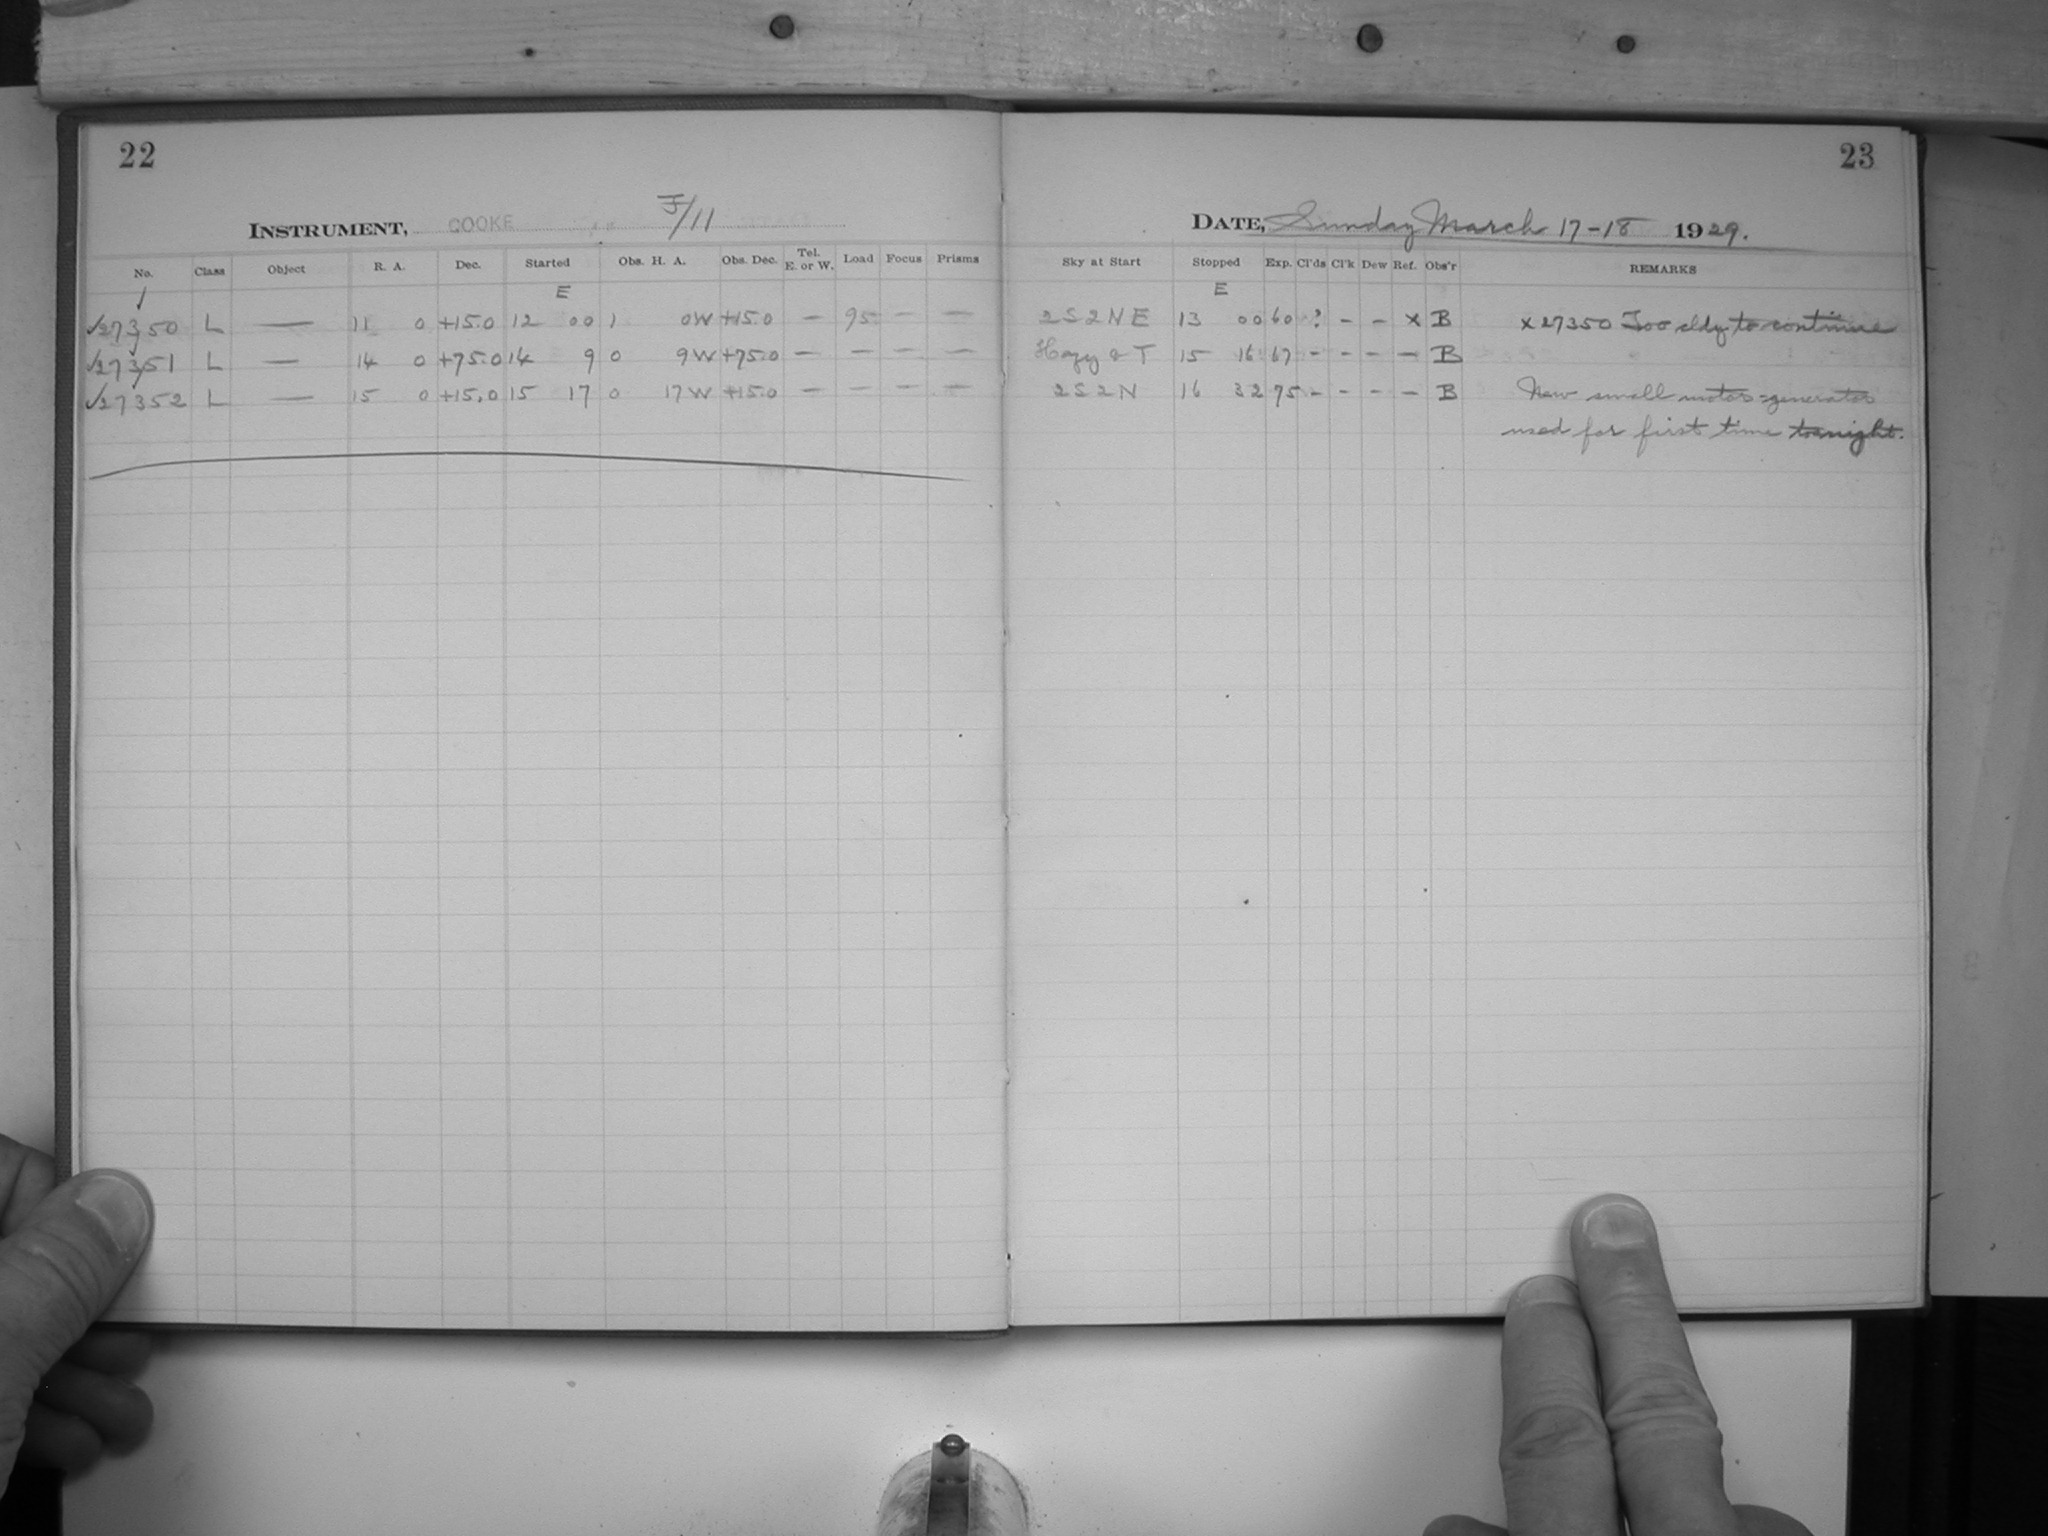 22
INSTRUMENT, COOKE F/11
No. Class Object R. A. Dec. Started Obs. H. A. Obs. Dec. Tel. E. or W. Load Focus Prisms
E
√27350 L — 11 0 +15.0 12 00 1 0W +15.0 — 95 — —
√27351 L — 14 0 +75.0 14 9 0 9W +75.0 — — — —
√27352 L — 15 0 +15.0 15 17 0 17W +15.0 — — — —
23
DATE, Sunday March 17-18 1929.
Sky at Start Stopped Exp. Cl'ds Cl'k Dew Ref. Obs'r REMARKS
E
2S2NE 13 00 60 ? - - x B x27350 Too cldy to continue
Hazy & T 15 16 67 - - - - B
2S2N 16 32 75 - - - - B New small motor-generator
used for first time tonight.